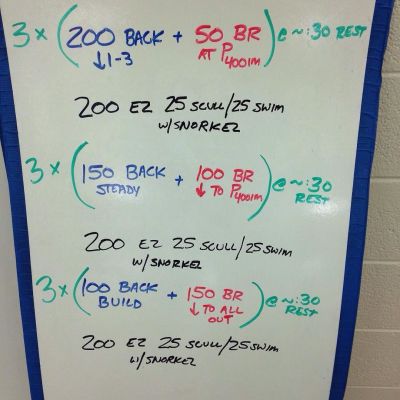 3 x (200 BACK + 50 BR) @ ~:30 REST
↓1-3 AT P400IM
200 EZ 25 SCULL/25 SWIM
W/SNORKEL
3 x (150 BACK + 100 BR) @ ~:30
STEADY ↓ TO P400IM REST
200 EZ 25 SCULL/25 SWIM
W/SNORKEL
3 x (100 BACK + 150 BR) @ ~:30
BUILD ↓ TO ALL REST
OUT
200 EZ 25 SCULL/25 SWIM
W/SNORKEL